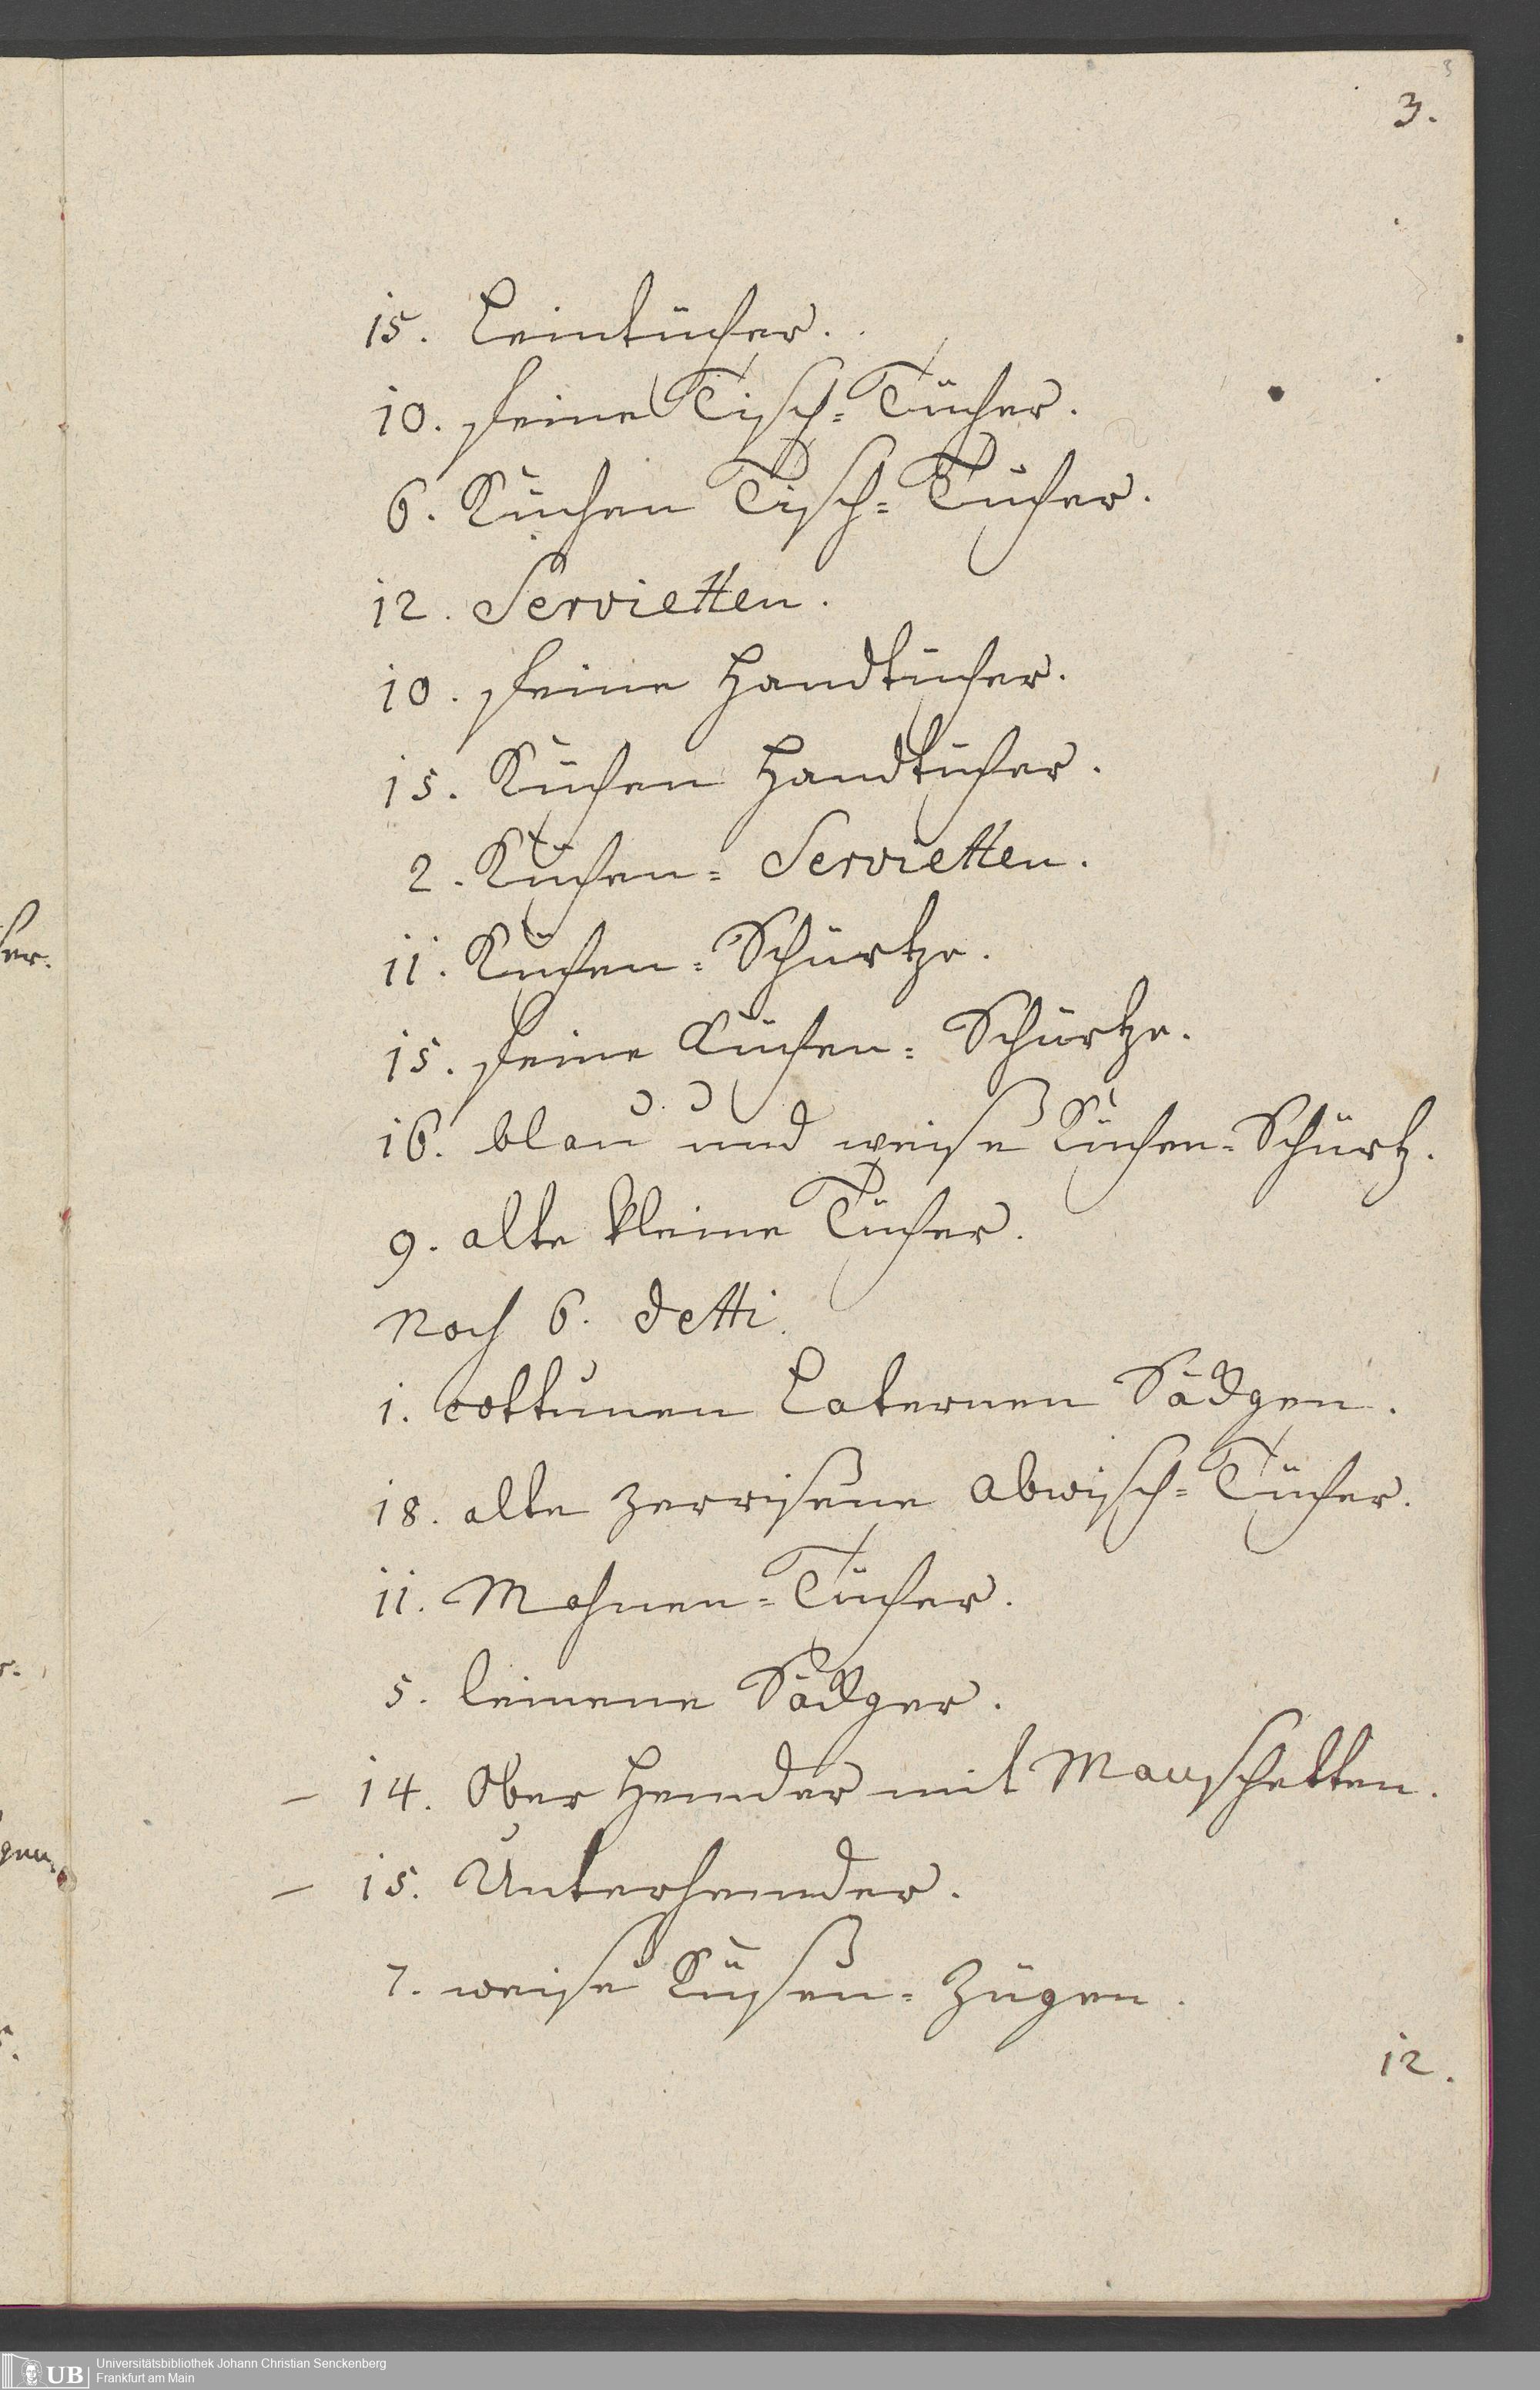 3
3.
15. Leintücher.
10. feine Tisch= Tücher.
6. Küchen Tisch= Tücher.
12. Servietten.
10. feine Handtücher.
15. Küchen Handtücher.
2. Küchen= Servietten.
11. Küchen= Schürtze.
15. feine Küchen= Schürtze.
16. blau und weise Küchen= Schürtz.
9. alte kleine Tücher.
Noch 6. detti.
1. cottunen Laternen Säckgen.
18. alte zerrisene Abwisch= Tücher.
11. Mahnen= Tücher.
5. leinene Säckger.
– 14. Ober Hemder mit Manschetten.
– 15. Unterhemder.
7. weise Küsen= Zügen.
12.
UB Universitätsbibliothek Johann Christian Senckenberg
Frankfurt am Main